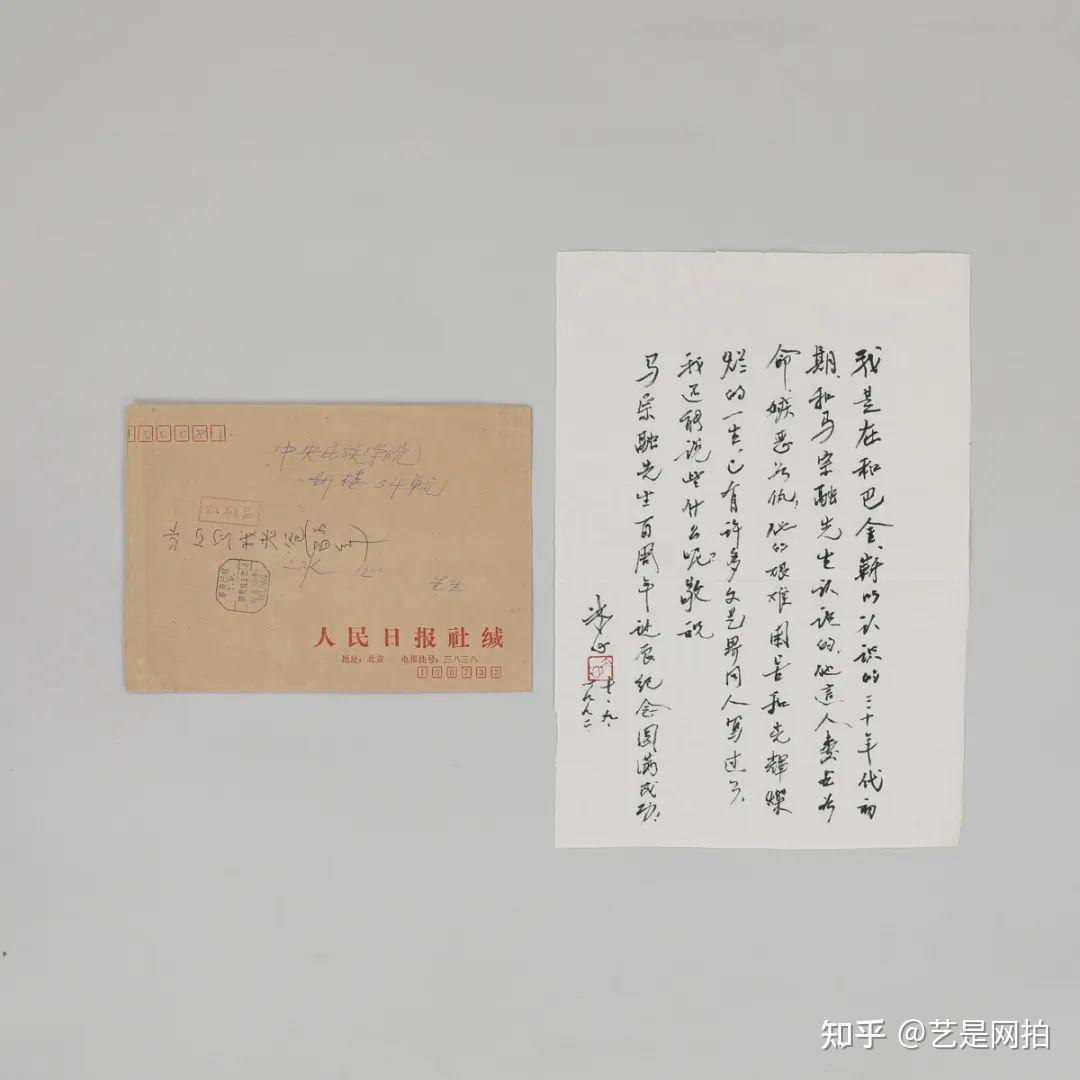 中央民族学院
新楼54单元
冰心
先生
人民日报社缄
地址：北京 电报挂号：三八三八
100733
我是在和巴金、靳以认识的三十年代初
期、和马宗融先生认识的，他这人爱友如
命、嫉恶如仇，他的艰难困苦和光辉灿
烂的一生，已有许多文艺界同人写过了，
我还能说些什么呢？敬祝
马宗融先生百周年诞辰纪念圆满成功！
冰心
十、九、
一九九二
知乎 @艺是网拍